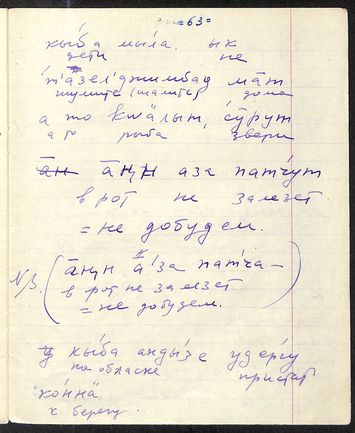 =63=
кы́ба мы́ла. ык
дети не
т'а́зел'джимбад ма̄т
шумите (шалите) дома
а то кwä́лыт, сӯрут
а то рыба звери
а̄н а̄ңн аза патчут
в рот не залезет
= не добудем.
NB. (а̄ңн а́'за пат'ча –
в рот не залезет
= не добудем.)
кы́ба анды́зе удергу
на обласке пристать
ко́ннä
к берегу.